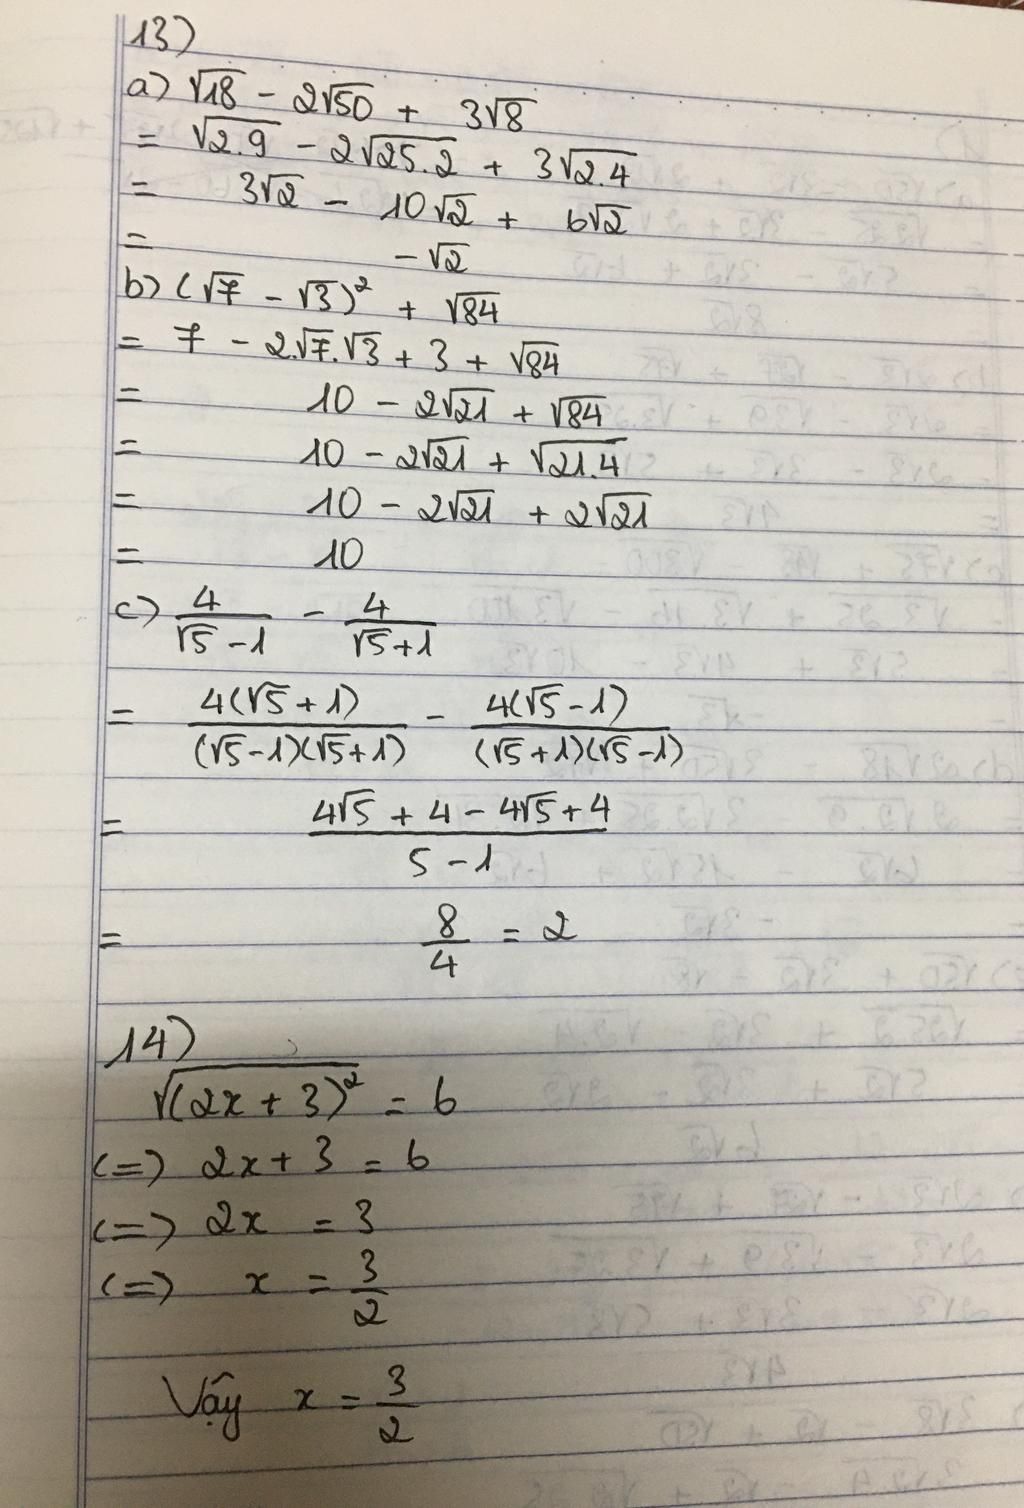 13)
a) √18 - 2√50 + 3√8
= √2.9 - 2√25.2 + 3√2.4
= 3√2 - 10√2 + 6√2
= -√2
b) (√7 - √3)² + √84
= 7 - 2.√7.√3 + 3 + √84
= 10 - 2√21 + √84
= 10 - 2√21 + √21.4
= 10 - 2√21 + 2√21
= 10
c) 4/(√5-1) - 4/(√5+1)
= 4(√5+1)/(√5-1)(√5+1) - 4(√5-1)/(√5+1)(√5-1)
= (4√5 + 4 - 4√5 + 4)/(5-1)
= 8/4 = 2
14)
√(2x+3)² = 6
(=) 2x+3 = 6
(=) 2x = 3
(=) x = 3/2
Vậy x = 3/2